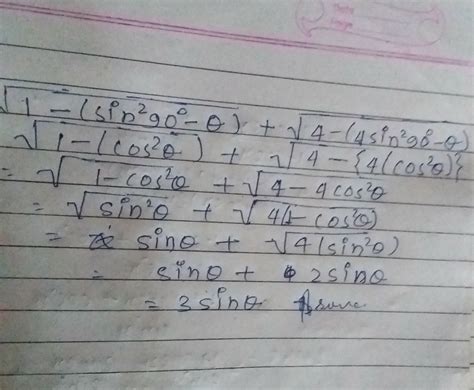 √1 - (sin²90° - θ) + √4 - (4sin²90° - θ)
√1 - (cos²θ) + √4 - {4(cos²θ)}
= √1 - cos²θ + √4 - 4cos²θ
= √sin²θ + √4(1 - cos²θ)
= sinθ + √4(sin²θ)
= sinθ + 2sinθ
= 3sinθ